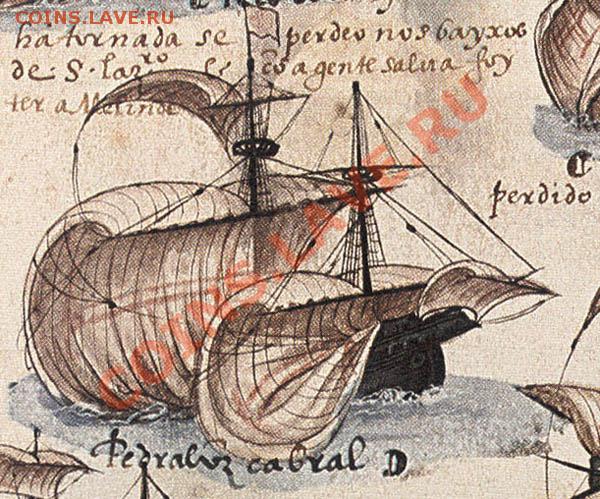 COINS.LAVE.RU
ha tornada se perdeo nos bayxos
de S. Lazro e a gente salua foy
ter a Melinde
perdido
Pedraluz cabral D
COINS.LAVE.RU